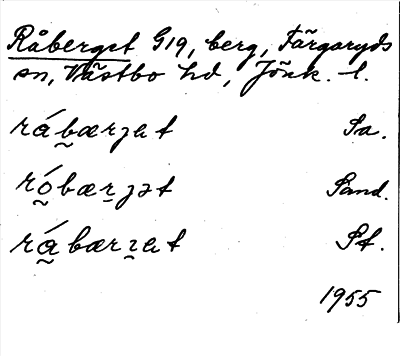 Råberget G19, berg, Färgaryds
sn, Västbo hd, Jönk. l.
rá̰bærȝet Sa.
ró̰bær̠ȝət Sand.
rá̰bærɀet St.
1955